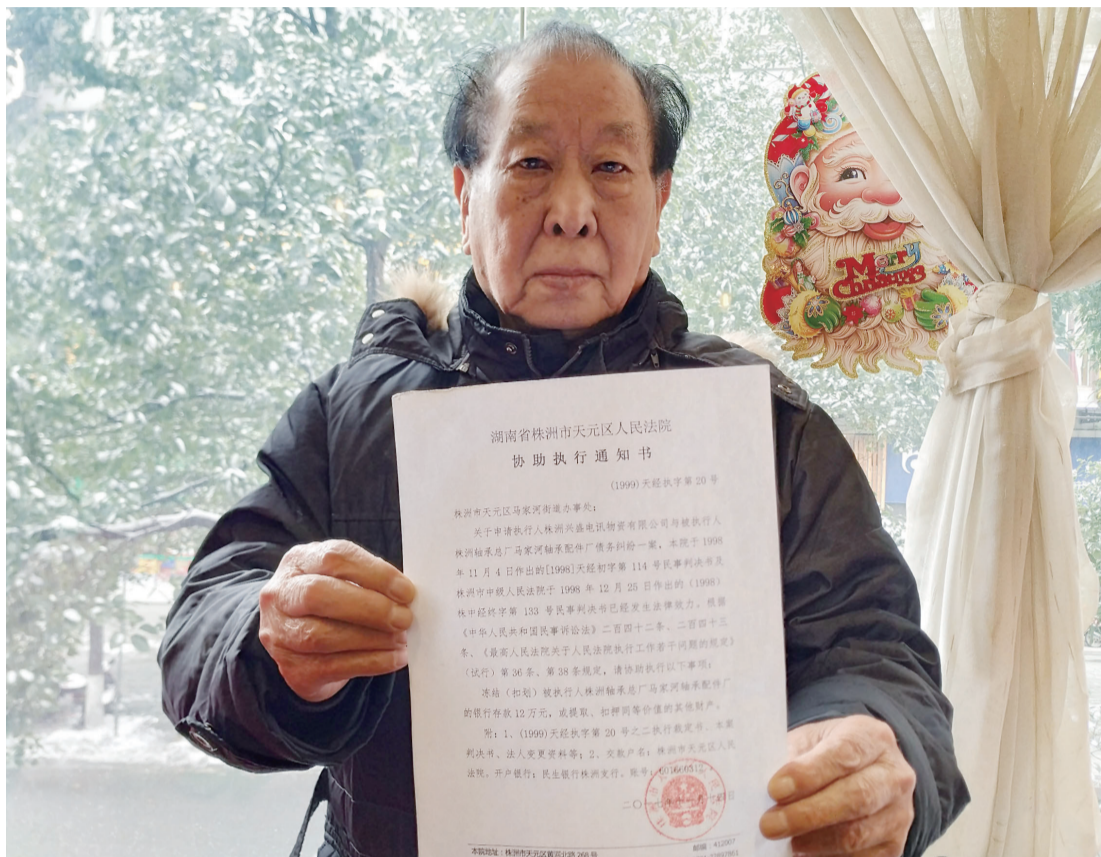 Merry
Christmas
湖南省株洲市天元区人民法院
协助执行通知书
(1999)天经执字第20号
株洲市天元区马家河街道办事处:
关于申请执行人株洲兴盛电讯物资有限公司与被执行人
株洲轴承总厂马家河轴承配件厂债务纠纷一案,本院于1998
年11月4日作出的[1998]天经初字第114号民事判决书及
株洲市中级人民法院于1998年12月25日作出的(1998)
株中经终字第133号民事判决书已经发生法律效力。根据
《中华人民共和国民事诉讼法》二百四十二条、二百四十三
条、《最高人民法院关于人民法院执行工作若干问题的规定》
(试行)第36条、第38条规定,请协助执行以下事项:
冻结(扣划)被执行人株洲轴承总厂马家河轴承配件厂
的银行存款12万元,或提取、扣押同等价值的其他财产。
附:1、(1999)天经执字第20号之二执行裁定书、本案
判决书、法人变更资料等;2、交款户名:株洲市天元区人民
法院,开户银行:民生银行株洲支行,账号:
二〇
日
本院地址:株洲市天元区黄河北路268号
邮编:412007